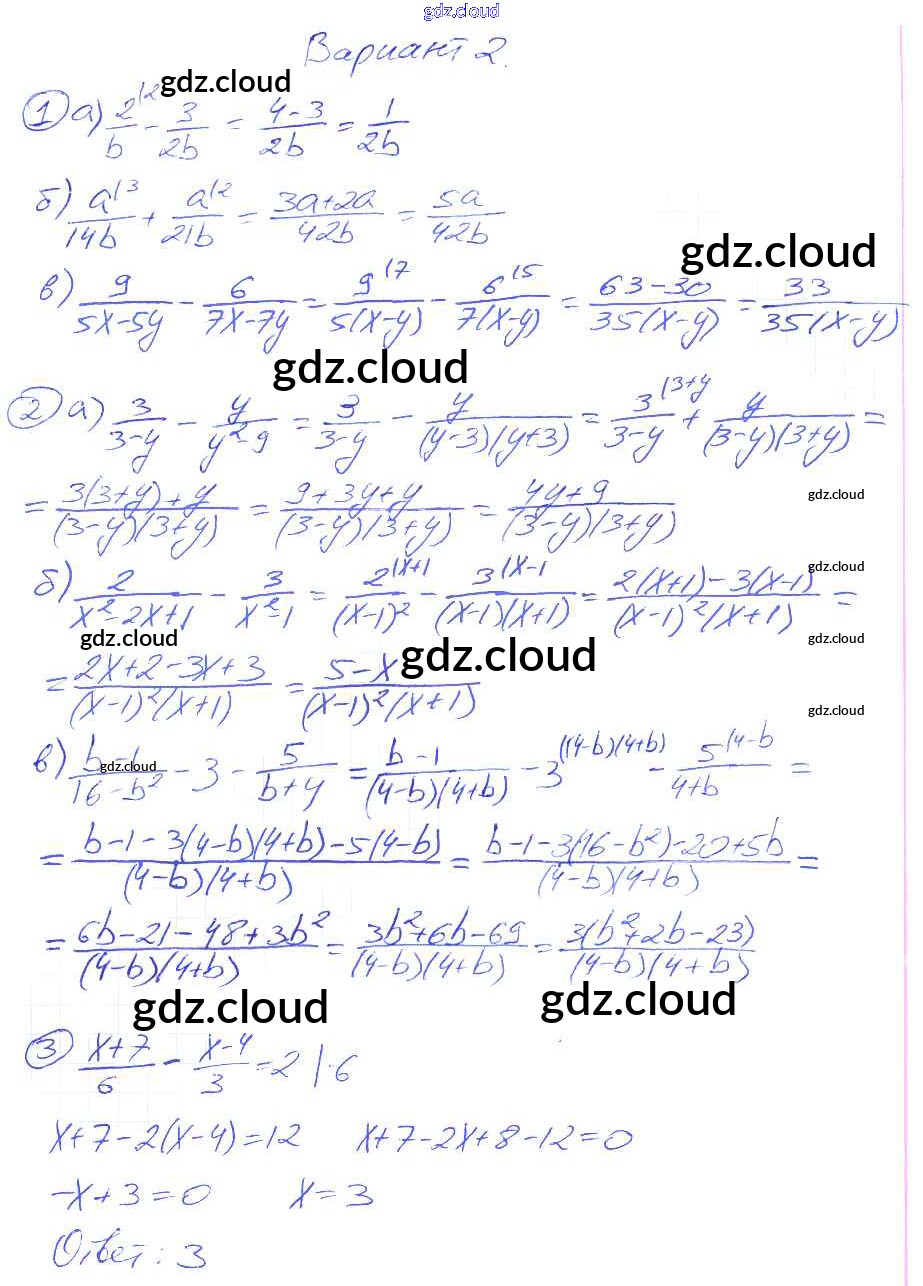 gdz.cloud
Вариант 2.
gdz.cloud
1 а) 2|2/b - 3/2b = 4-3/2b = 1/2b
б) a|3/14b + a|2/21b = 3a+2a/42b = 5a/42b
gdz.cloud
в) 9/5x-5y - 6/7x-7y = 9|7/5(x-y) - 6|5/7(x-y) = 63-30/35(x-y) = 33/35(x-y)
gdz.cloud
2 а) 3/3-y - y/y²-9 = 3/3-y - y/(y-3)(y+3) = 3|3+y/3-y + y/(3-y)(3+y) =
= 3(3+y)+y/(3-y)(3+y) = 9+3y+y/(3-y)(3+y) = 4y+9/(3-y)(3+y)
gdz.cloud
gdz.cloud
б) 2/x²-2x+1 - 3/x²-1 = 2|x+1/(x-1)² - 3|x-1/(x-1)(x+1) = 2(x+1)-3(x-1)/(x-1)²(x+1) =
gdz.cloud
gdz.cloud
gdz.cloud
= 2x+2-3x+3/(x-1)²(x+1) = 5-x/(x-1)²(x+1)
gdz.cloud
gdz.cloud
в) b-1/16-b² - 3 - 5/b+y = b-1/(4-b)(4+b) - 3|(4-b)(4+b) - 5|4-b/4+b =
= b-1-3(4-b)(4+b)-5(4-b)/(4-b)(4+b) = b-1-3(16-b²)-20+5b/(4-b)(4+b) =
= 6b-21-48+3b²/(4-b)(4+b) = 3b²+6b-69/(4-b)(4+b) = 3(b²+2b-23)/(4-b)(4+b)
gdz.cloud
gdz.cloud
3 x+7/6 - x-4/3 = 2 |·6
x+7-2(x-4)=12 x+7-2x+8-12=0
-x+3=0 x=3
Ответ: 3